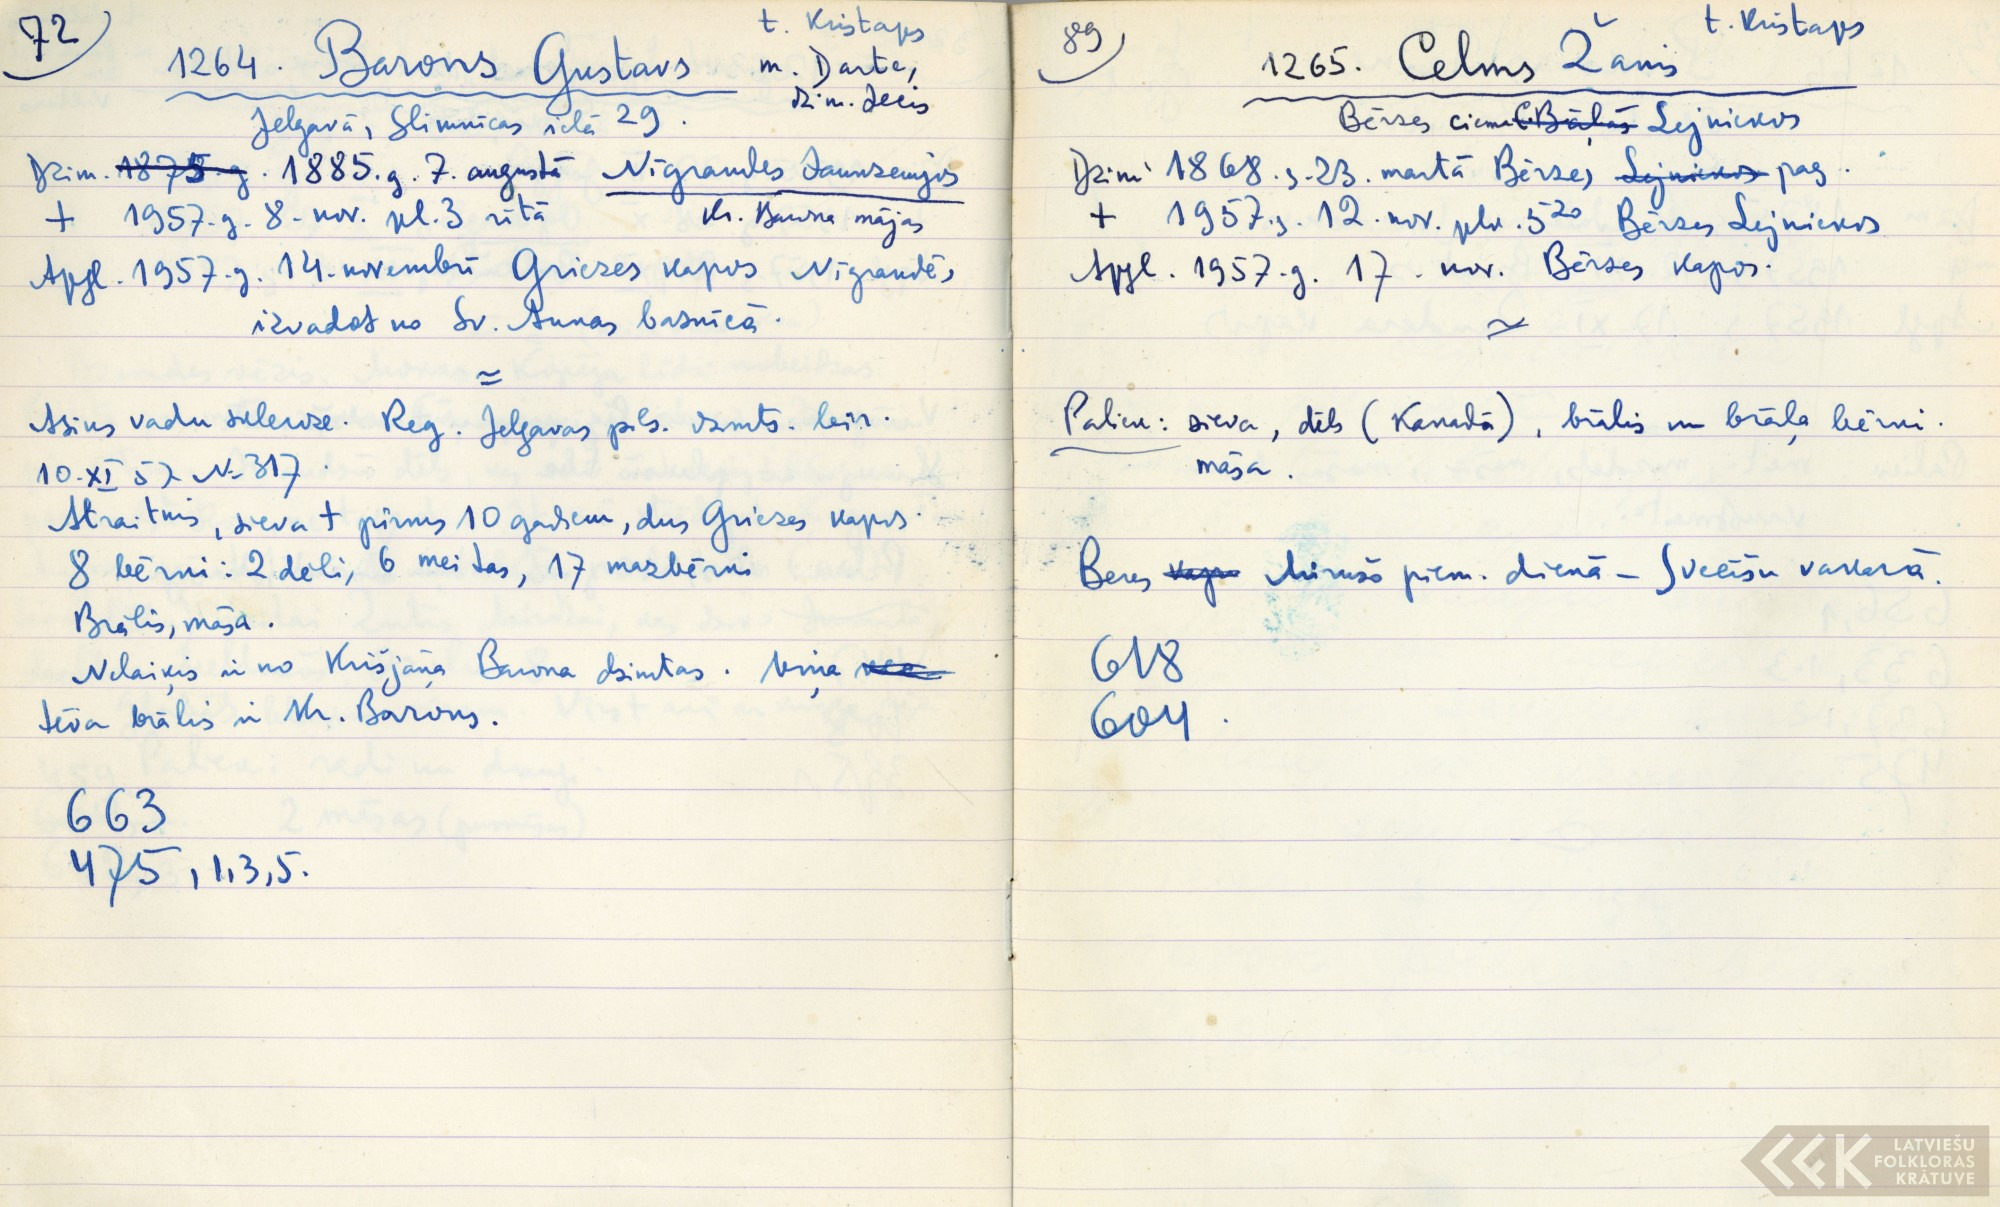 72
t. Kristaps
1264. Barons Gustavs m. Darta,
dzim. Jecis
Jelgavā, Slimnīcas ielā 29.
Dzim. 1875.g. 1885.g. 7. augustā Nīgrandes Jaunzemjos
+ 1957.g. 8. nov. pl. 3 rītā Kr. Barona mājas
Apgl. 1957.g. 14. novembrī Griezes kapos Nīgrandē,
izvadot no Sv. Annas baznīcā.
≃
Asins vadu skleroze. Reg. Jelgavas pils. dzmts. bir.
10.XI 57 N. 317.
Atraitnis, sieva + pirms 10 gadiem, dus Griezes kapos.
8 bērni: 2 dēli, 6 meitas, 17 mazbērni
Brālis, māsa.
Nelaiķis ir no Krišjāņa Barona dzimtas. Viņa
tēva brālis ir Kr. Barons.
663
475, 1,3,5.
89
t. Kristaps
1265. Celms Žanis
Bērzes ciema Lejniekos
Dzim 1868.g. 23. martā Bērzes Lejniekos pag.
+ 1957.g. 12. nov. plv. 5 20 Bērzes Lejniekos
Apgl. 1957.g. 17. nov. Bērzes kapos.
≃
Paliek: sieva, dēls (Kanadā), brālis un brāļa bērni.
māsa.
Beres kapo Mirušo piem. dienā – Svecīšu vakarā.
618
604.
LATVIEŠU
FOLKLORAS
KRĀTUVE